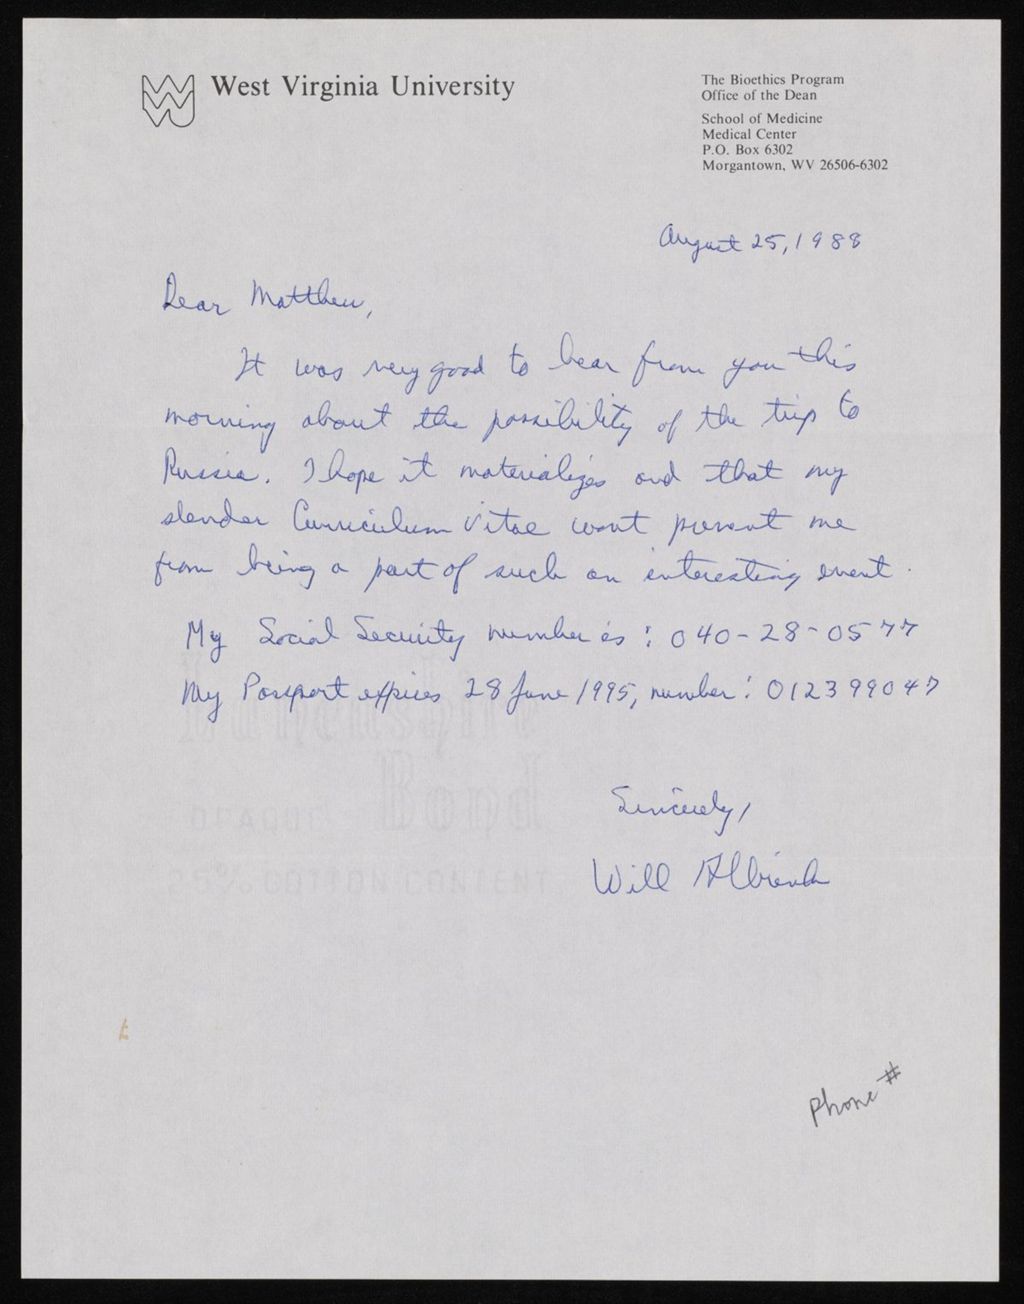 West Virginia University
The Bioethics Program
Office of the Dean
School of Medicine
Medical Center
P.O. Box 6302
Morgantown, WV 26506-6302
August 25, 1988
Dear Matthew,
It was very good to hear from you this
morning about the possibility of the trip to
Russia. I hope it materializes and that my
slender Curriculum Vitae wont prevent me
from being a part of such an interesting event.
My Social Security number is: 040-28-0577
My Passport expires 28 June 1995, number: 012399047
Bond
25% COTTON CONTENT
Sincerely,
Will Albrink
Phone #